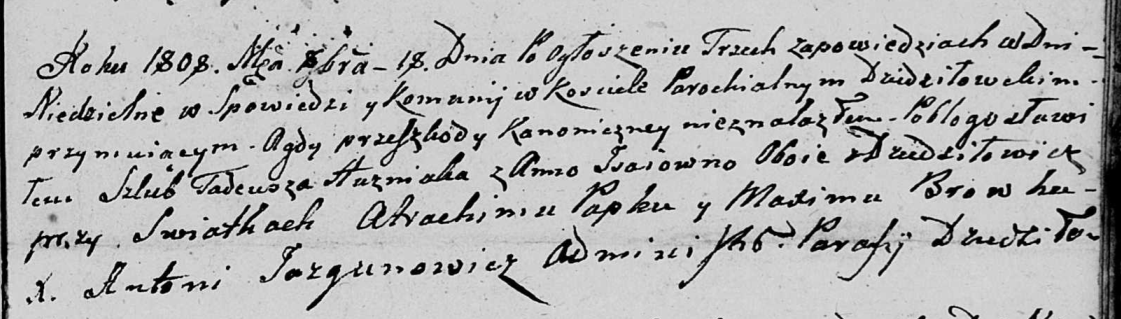 Roku 1808. Mca 8bra – 18. Dnia Po Ogłoszeniu Trzech zapowiedziach w Dni –
Niedzielne w Spowiedzi y Komunij w Kosciele Parochialnym Dziedziłowckim
przymuiącym. Agdy przeszkody Kanoniczney nieznalazłem – Pobłogosławi
łem Szlub Tadeusza Huzniaka z Anno Isaiowno Oboie z Dziedziłowicz
przy Swiatkach Atrachimu Papku y Maximu Browku –
X. Antoni Jazgunowicz Administ. Parafij Dziedziło –